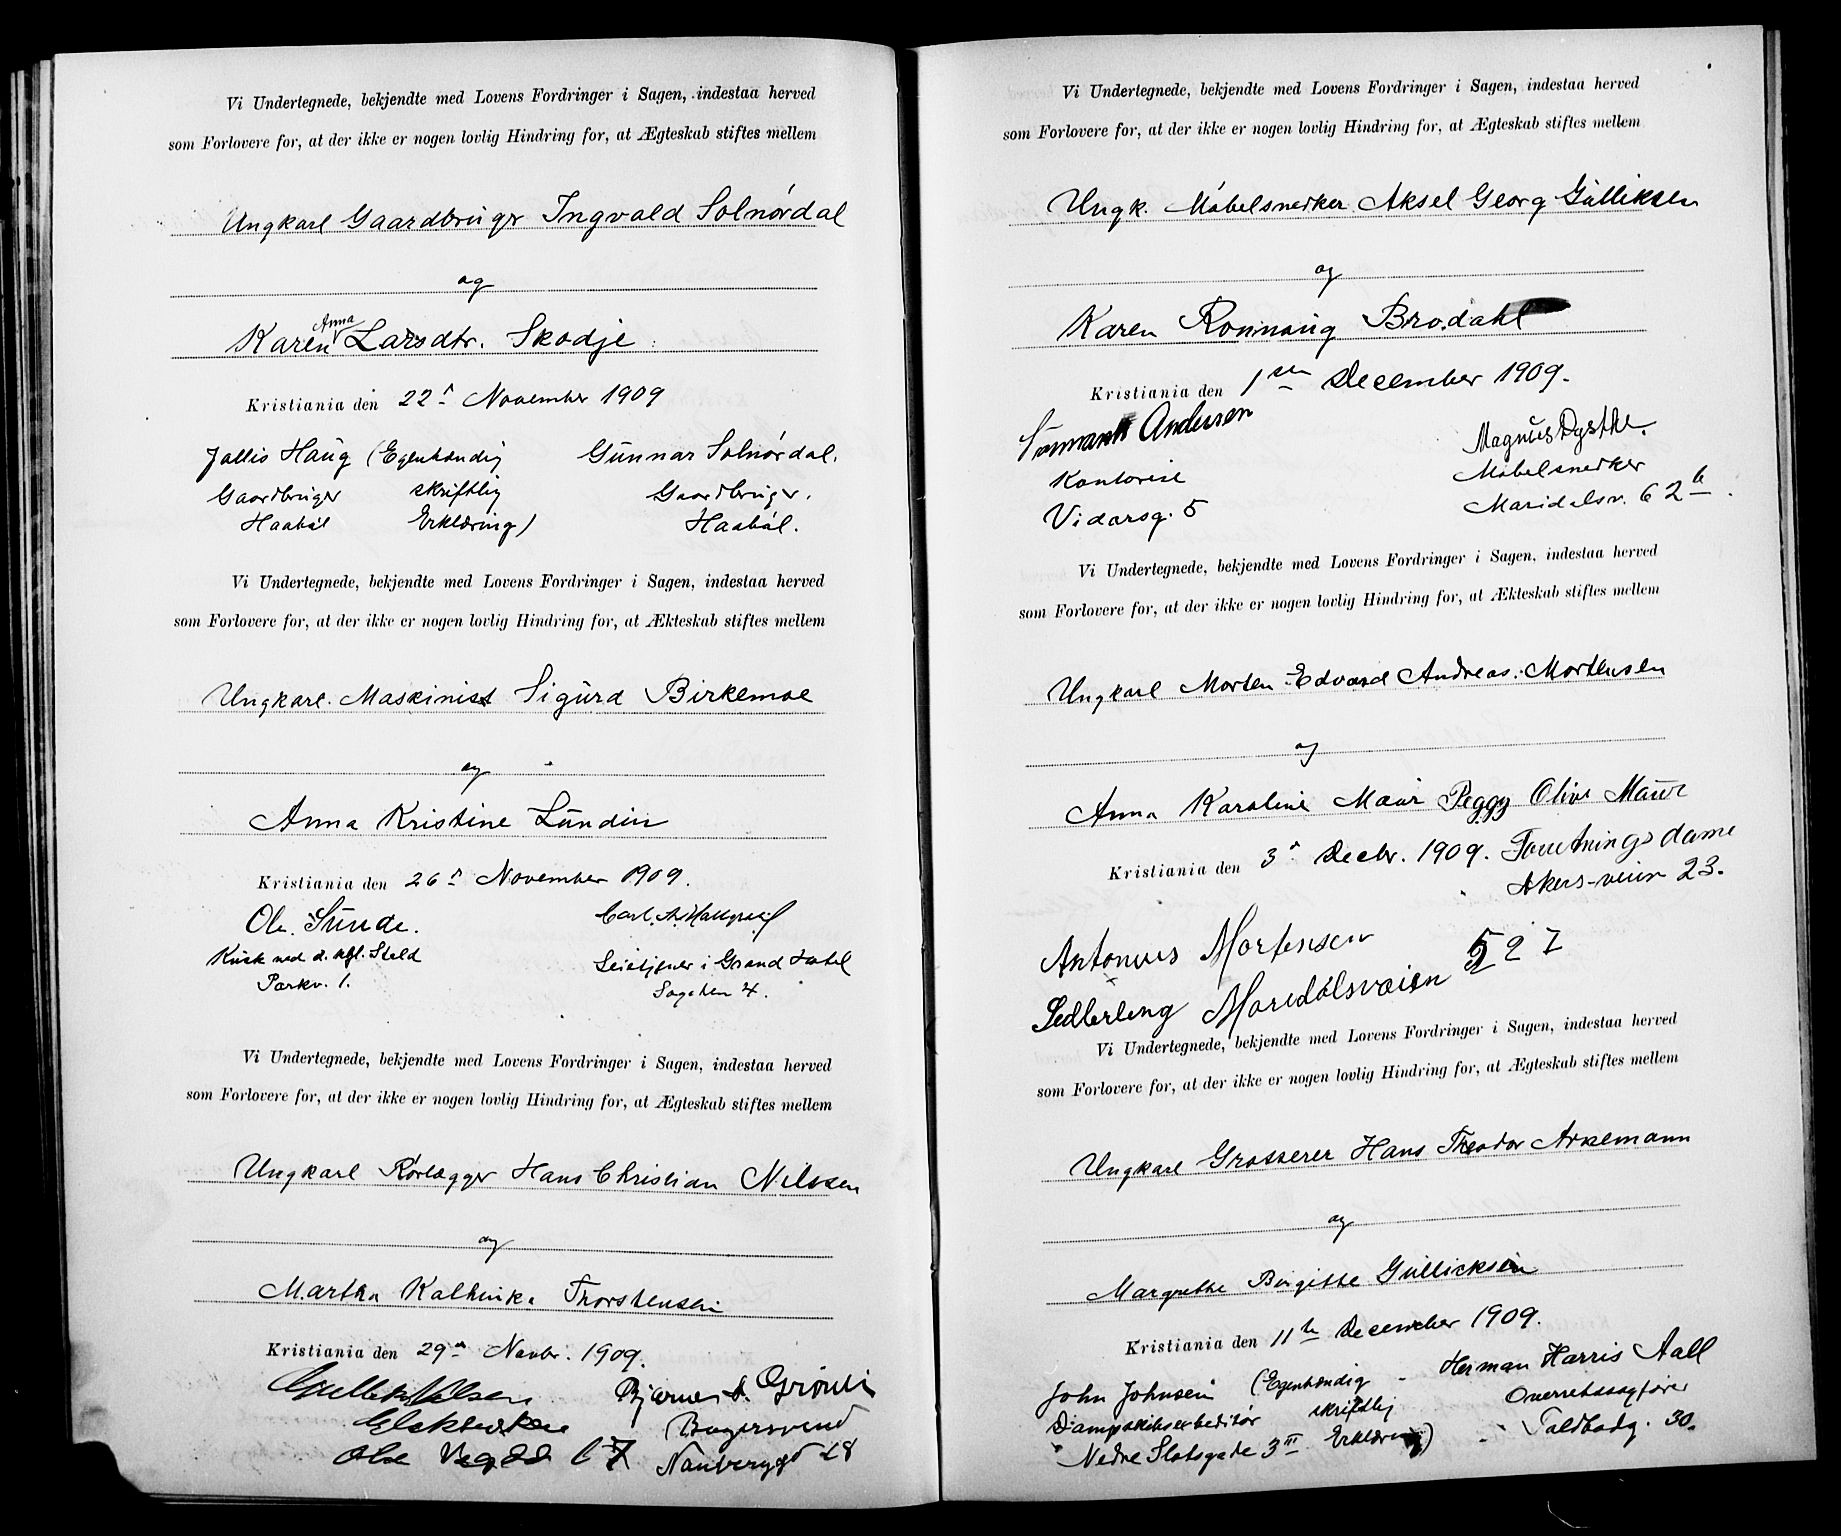 Vi Undertegnede, bekjendte med Lovens Fordringer i Sagen, indestaa herved
som Forlovere for, at der ikke er nogen lovlig Hindring for, at Ægteskab stiftes mellem
Ungkarl Gaardbruger Ingvald Solnørdal
og
Anna
Karen Larsdtr. Skodje
Kristiania den 22' November 1909
Haug (Egenhændig Gunnar Solnørdal.
Gaardbruger skriftlig Gaardbruger.
Haabøl Erklæring) Haabøl.
Vi Undertegnede, bekjendte med Lovens Fordringer i Sagen, indestaa herved
som Forlovere for, at der ikke er nogen lovlig Hindring for, at Ækteskab stiftes mellem
Ungkarl. Maskinist Sigurd Birkemoe
og
Anna Kristine Lundin
Kristiania den 26' November 1909.
Ole Sunde. Carl
Kusk ved d. kgl. Stald i Grand Hotel
Parkv. 1. 4.
Vi Undertegnede, bekjendte med Lovens Fordringer i Sagen, indestaa herved
som Forlovere for, at der ikke er nogen lovlig Hindring for, at Ægteskab stiftes mellem
Ungkarl Rørlægger Hans Christian Nilssen
og
Martha Kathinka Thorstensen
Kristiania den 29' Novbr. 1909.
Bjarne
Elektriker Bagersvend
48
Vi Undertegnede, bekjendte med Lovens Fordringer i Sagen, indestaa herved
som Forlovere for, at der ikke er nogen lovlig Hindring for, at Ægteskab stiftes mellem
Ungk. Møbelsnedker Aksel Georg Gulliksen
og
Karen Ronnaug Brodahl
Kristiania den 1ste December 1909.
Andersen Magnus Dysthe.
Kontorist Møbelsnedker
Vidarsg. 5 Maridalsv. 62 b.
Vi Undertegnede, bekjendte med Lovens Fordringer i Sagen, indestaa herved
som Forlovere for, at der ikke er nogen lovlig Hindring for, at Ækteskab stiftes mellem
Ungkarl Morten Edvard Andreas Mortensen
og
Anna Karoline Maur Peggy Olive Maur
Kristiania den 3' Decbr. 1909. Forretningsdame
Akers-veien 23.
Antonius Mortensen
Maridalsveien
Vi Undertegnede, bekjendte med Lovens Fordringer i Sagen, indestaa herved
som Forlovere for, at der ikke er nogen lovlig Hindring for, at Ægteskab stiftes mellem
Ungkarl Grosserer Hans Theodor Arkemann
og
Margrethe Birgitte Gullicksen
Kristiania den 11te December 1909.
John Johnsen (Egenhændig Herman Harris Aall
Dampskibsexpeditør skriftlig Overretssagfører
Nedre Slotsgade 3 III Erklæring) Toldbodg. 30.